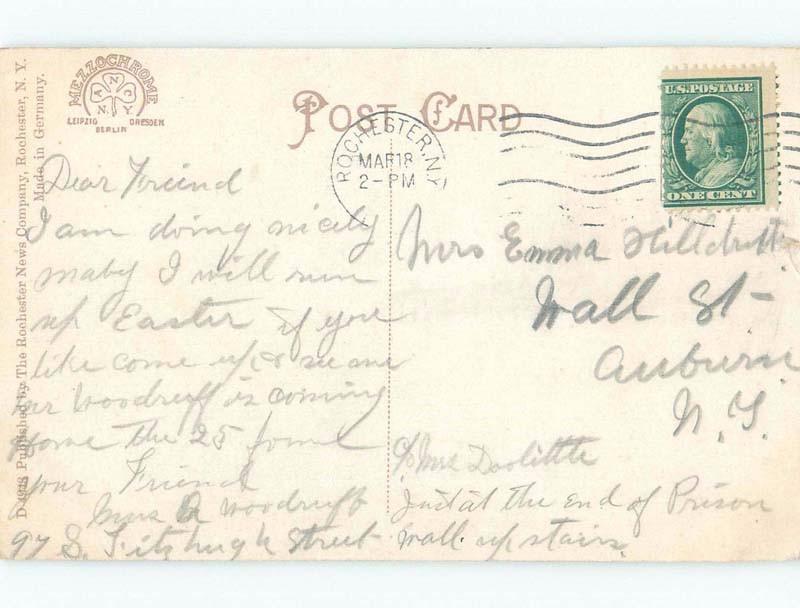 MEZZOCHROME
A N C
N. Y
LEIPZIG DRESDEN
BERLIN
POST CARD
ROCHESTER, N.Y.
MAR 18
2 - PM
U.S. POSTAGE
ONE CENT
D 4948 Published by The Rochester News Company, Rochester, N. Y.
Made in Germany.
Dear Freind
I am doing nicely
maby I will run
up Easter if you
like come up & see me
mr Woodruff is coming
home the 25 
your Friend
Mrs Woodruff
97 S. Fitzhugh Street
Mrs Emma
Wall St-
Auburn
N. Y.
c/o Mrs Doolittle
Just at the end of Prison
Wall. upstairs.